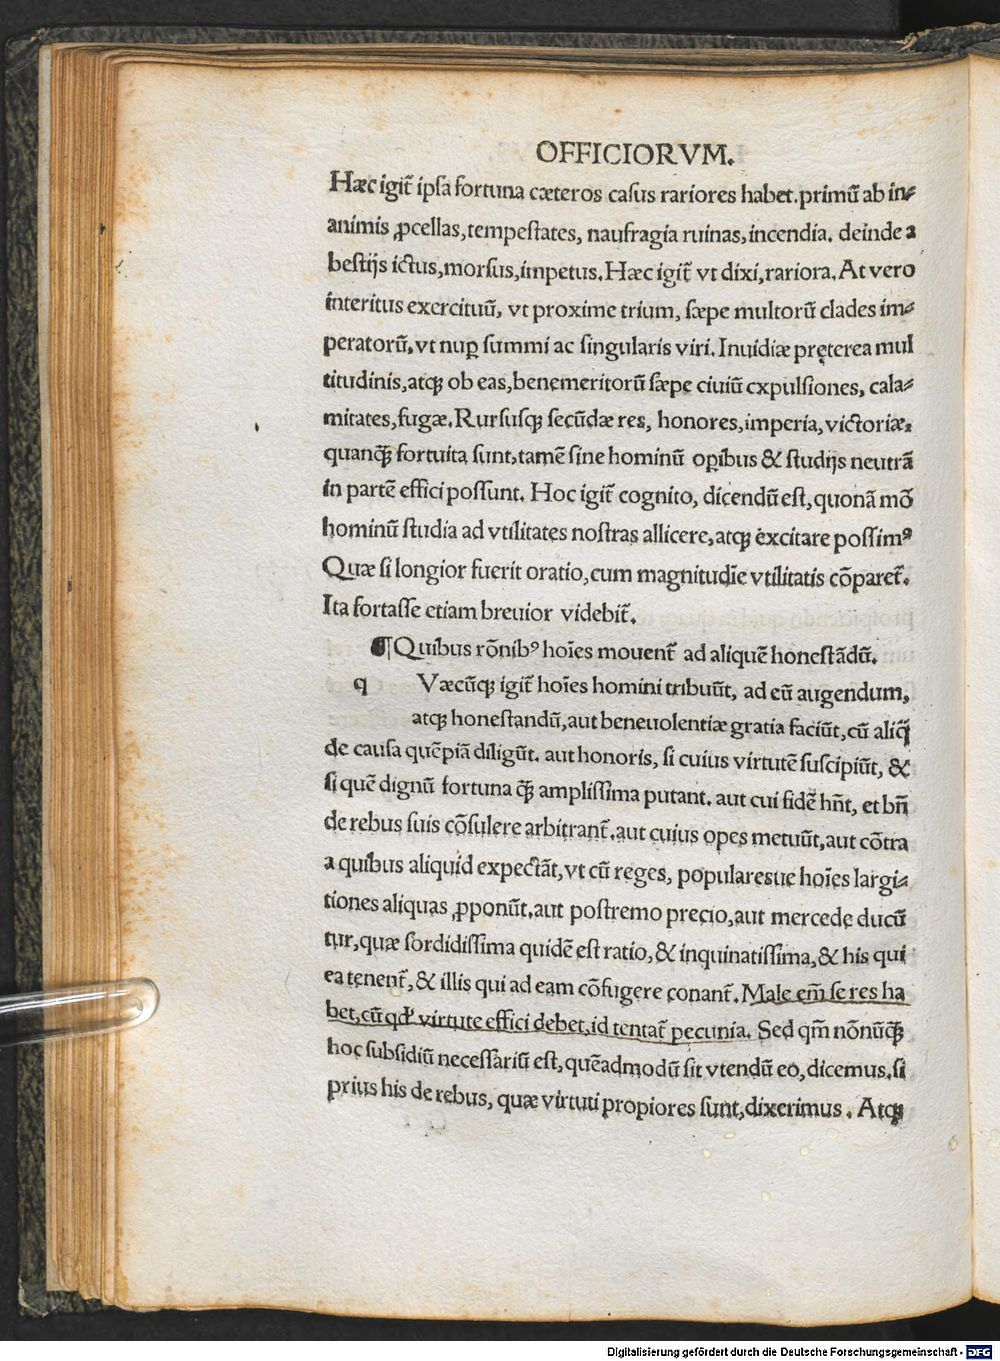 OFFICIORVM.
Hæc igit᷑ ipſa fortuna cæteros caſus rariores habet. primũ ab in⸗
animis ꝓcellas, tempeſtates, naufragia ruinas, incendia. deinde a
beſtijs ictus, morſus, impetus. Hæc igit᷑ vt dixi, rariora. At vero
interitus exercituũ, vt proxime trium, ſæpe multorũ clades im⸗
peratorũ, vt nuꝑ ſummi ac ſingularis viri. Inuidiæ pręterea mul
titudinis, atqꝫ ob eas, benemeritorũ ſæpe ciuiũ cxpulſiones, cala⸗
mitates, fugæ. Rurſuſqꝫ ſecũdæ res, honores, imperia, victoriæ,
quanqꝫ̃ fortuita ſunt, tamẽ ſine hominũ opibus & ſtudijs neutrã
in partẽ effici poſſunt. Hoc igit᷑ cognito, dicendũ eſt, quonã mõ
hominũ ſtudia ad vtilitates noſtras allicere, atqꝫ excitare poſſimꝰ
Quæ ſi longior fuerit oratio, cum magnitudĩe vtilitatis cõparet᷑.
Ita fortaſſe etiam breuior videbit᷑.
¶ Quibus rõnibꝰ hoĩes mouent᷑ ad aliquẽ honeſtãdũ.
q Væcũqꝫ igit᷑ hoĩes homini tribuũt, ad eũ augendum,
atqꝫ honeſtandũ, aut beneuolentiæ gratia faciũt, cũ aliq̃
de cauſa quẽpiã diligũt. aut honoris, ſi cuius virtutẽ ſuſcipiũt, &
ſi quẽ dignũ fortuna qꝫ̃ ampliſſima putant. aut cui fidẽ hñt, et bñ
de rebus ſuis cõſulere arbitrant᷑. aut cuius opes metuũt, aut cõtra
a quibus aliquid expectãt, vt cũ reges, populareſue hoĩes largi⸗
tiones aliquas ꝓponũt, aut poſtremo precio, aut mercede ducũ
tur, quæ ſordidiſſima quidẽ eſt ratio, & inquinatiſſima, & his qui
ea tenent᷑, & illis qui ad eam cõfugere conant᷑. Male em̃ ſe res ha
bet, cũ qd' virtute effici debet, id tentat᷑ pecunia. Sed qm̃ nõnũqꝫ̃
hoc ſubſidiũ neceſſariũ eſt, quẽadmodũ ſit vtendũ eo, dicemus, ſi
prius his de rebus, quæ virtuti propiores ſunt, dixerimus. Atqꝫ
Digitalisierung gefördert durch die Deutsche Forschungsgemeinschaft - DFG